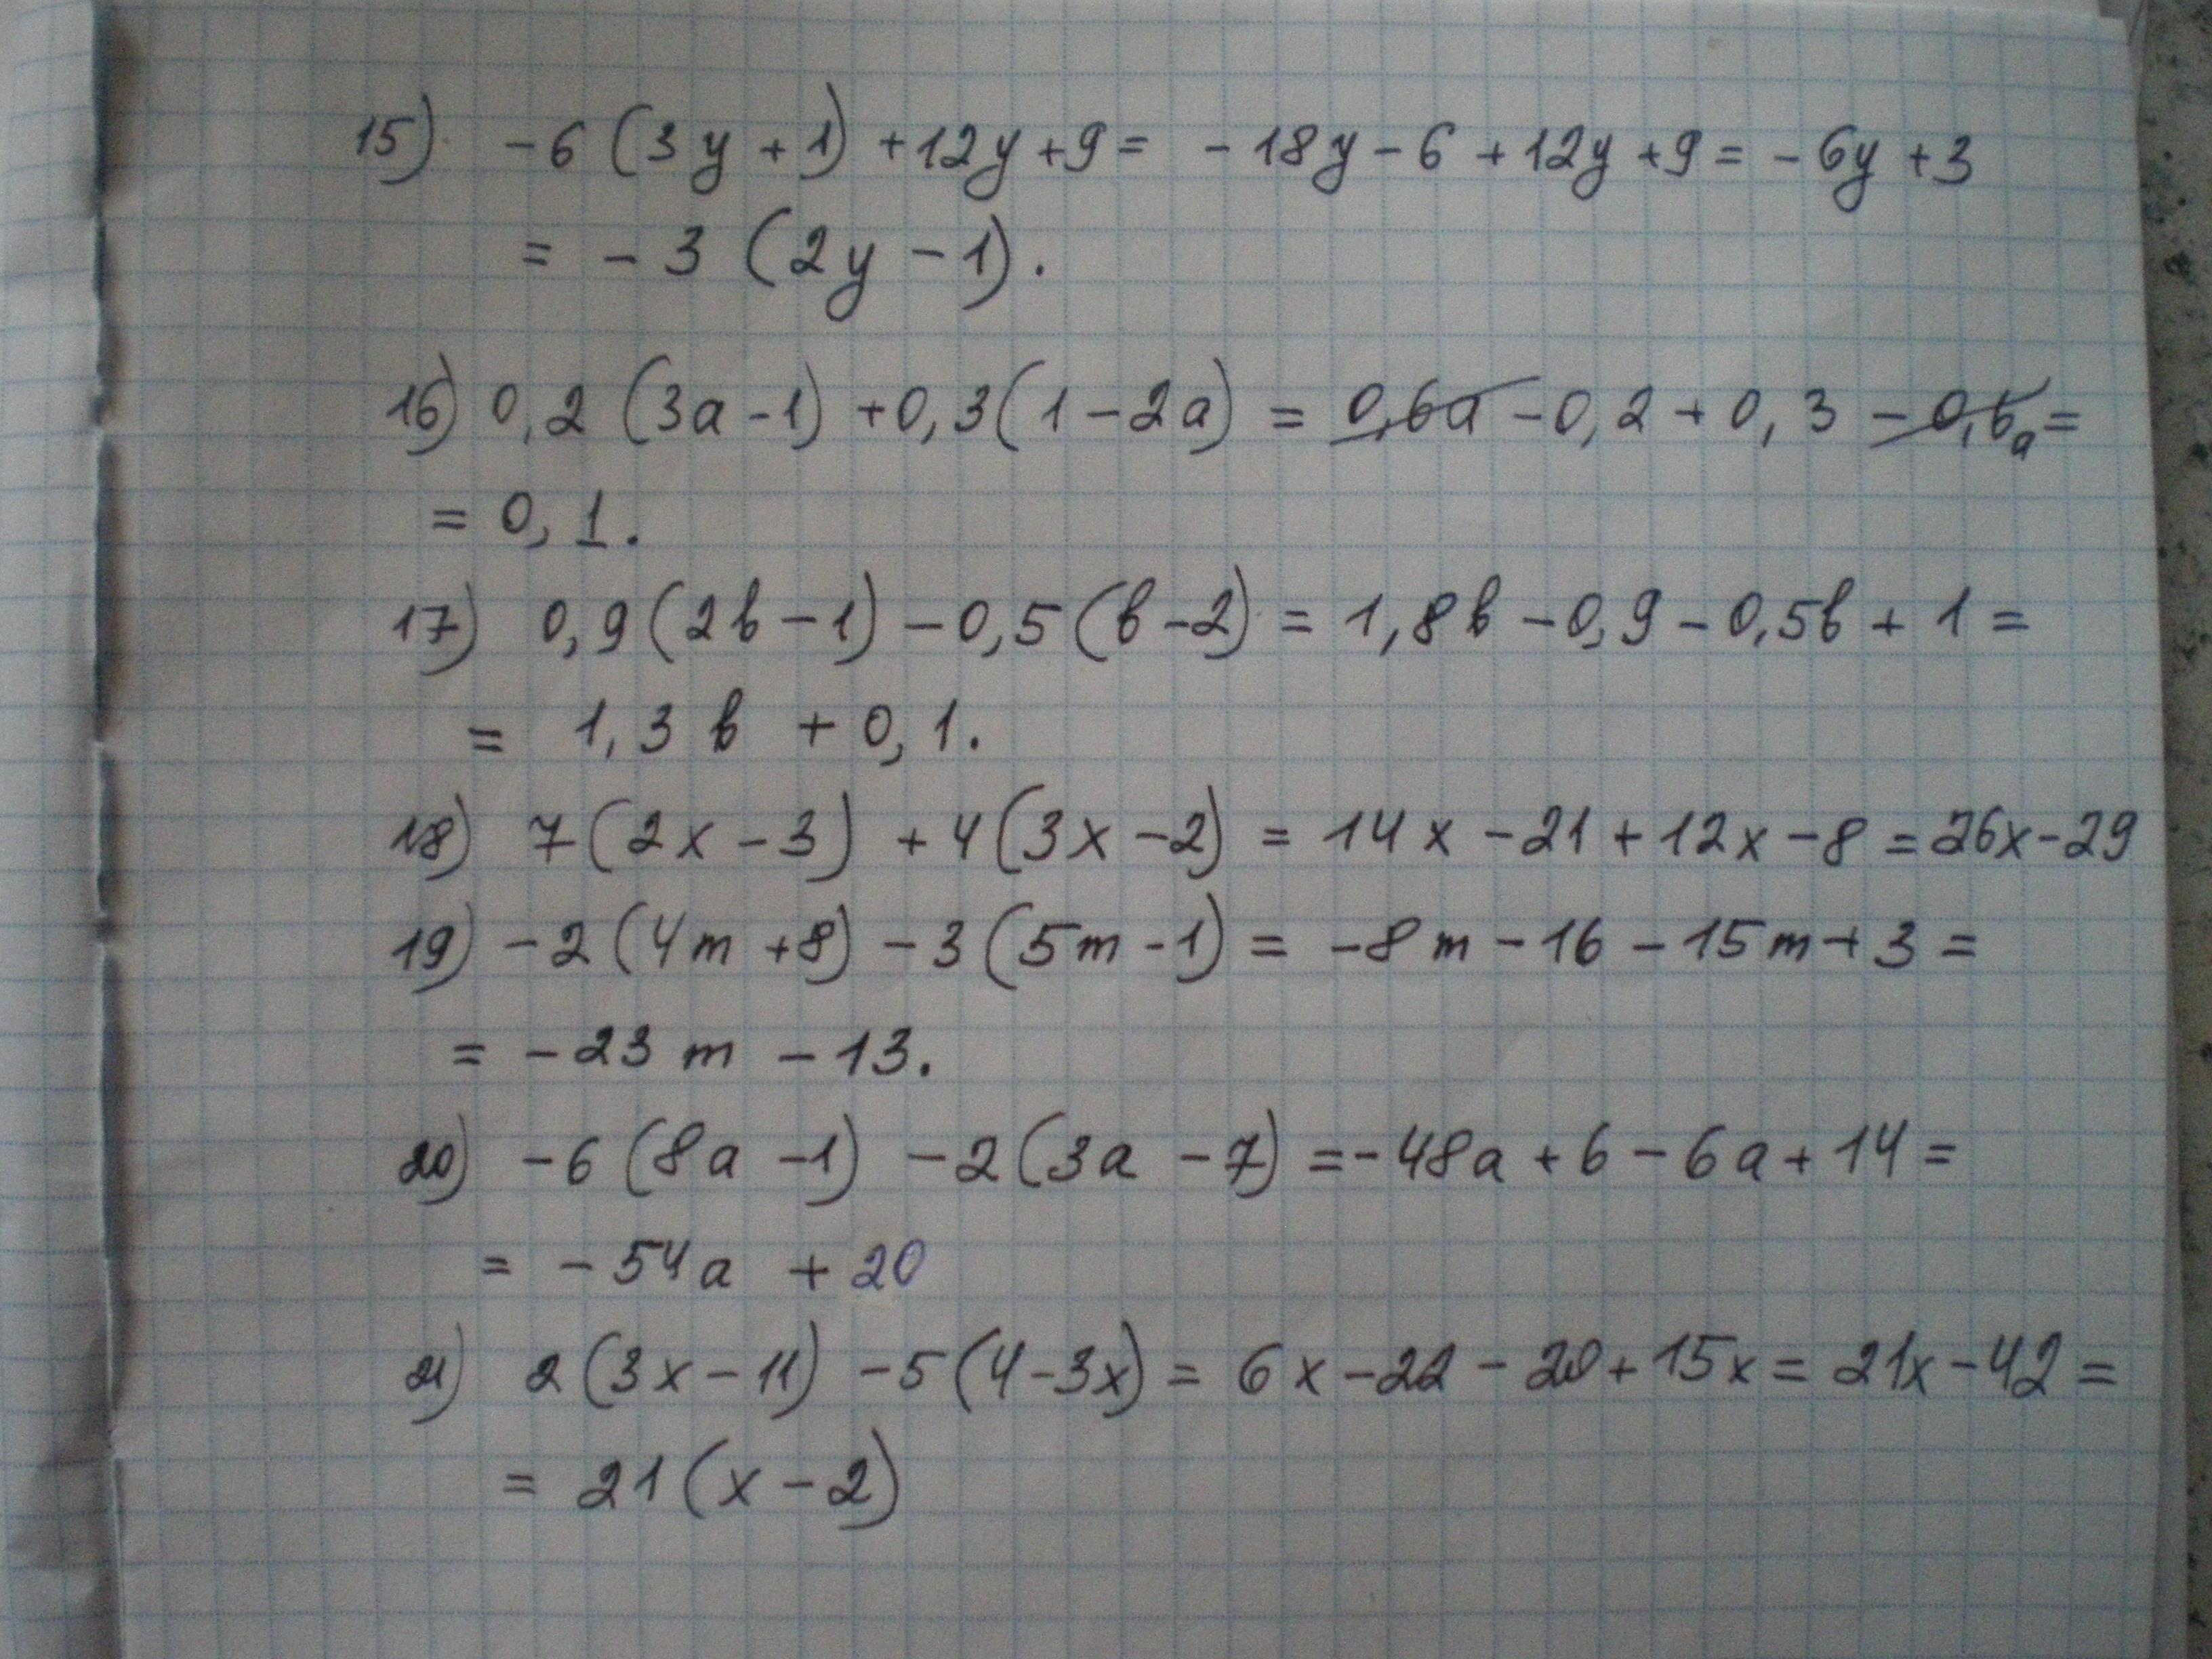 15) -6 (3y + 1) + 12y + 9 = - 18y - 6 + 12y + 9 = - 6y + 3
= - 3 (2y - 1).
16) 0,2 (3a - 1) + 0,3 (1 - 2a) = 0,6a - 0,2 + 0,3 - 0,6a =
= 0,1.
17) 0,9 (2b - 1) - 0,5 (b - 2) = 1,8b - 0,9 - 0,5b + 1 =
= 1,3 b + 0,1.
18) 7 (2x - 3) + 4 (3x - 2) = 14x - 21 + 12x - 8 = 26x - 29
19) - 2 (4m + 8) - 3 (5m - 1) = -8m - 16 - 15m + 3 =
= - 23 m - 13.
20) - 6 (8a - 1) - 2 (3a - 7) = - 48a + 6 - 6a + 14 =
= - 54a + 20
21) 2 (3x - 11) - 5 (4 - 3x) = 6x - 22 - 20 + 15x = 21x - 42 =
= 21 (x - 2)